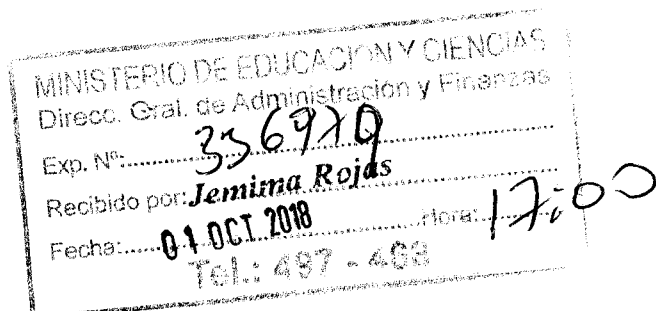 MINISTERIO DE EDUCACION Y CIENCIAS
Direcc. Gral. de Administración y Finanzas
Exp. Nº:
Recibido por: Jemima Rojas
Fecha: 01 OCT 2018 Hora: 17:00
Tel.: 497 - 403